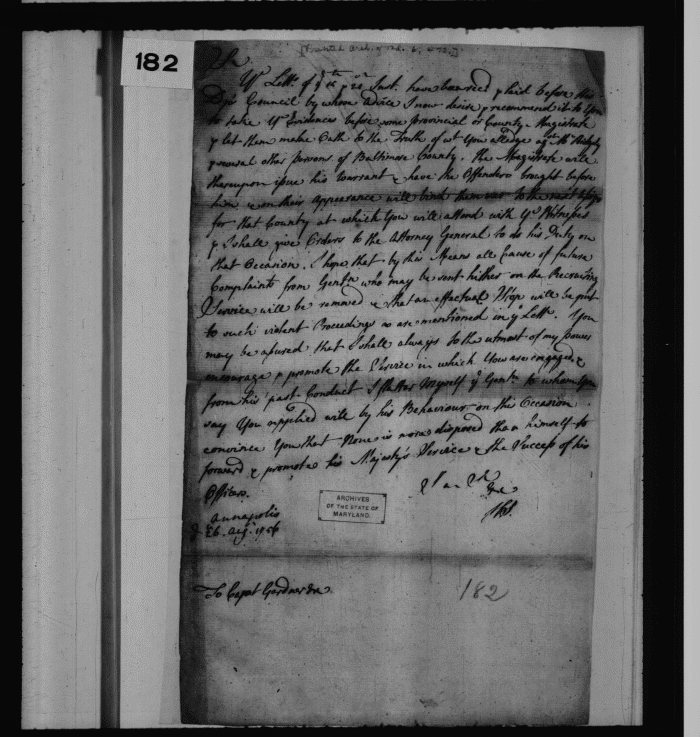 182
[Printed Arch. of Md. 6, 472.]
Sr
Yr Lettr. of ye & 20 Inst. have been recd & laid before this
Ldp's Council by whose Advice I now desire & recommend it to You
to take Yr Evidences before some Provincial or County Magistrate
& let them make Oath to the Truth of wt You alledge agt Mr
& several other persons of Baltimore County. the Magistrate will
thereupon issue his Warrant & have the Offenders brought before
him & on their Appearance will bind them over to the next Assizes
for that County at which You will attend with Yr Witnesses
& I shall give Orders to the Attorney General to do his Duty on
that Occasion. I hope that by this Means all Cause of future
Complaints from Gentn who may be sent hither on the Recruiting
Service will be removed & that an effectual Stop will be put
to such violent Proceedings as are mentioned in yr Lettr. You
may be assured that I shall always to the utmost of my power
encourage & promote the Service in which You are engaged &
from his past Conduct I flatter myself ye Gentn. to whom You
say You applied will by his Behaviour on this Occasion
convince You that None is more disposed than himself to
forward & promote his Majesty's Service & the Success of his
Officers.
I am Sr
&c
HS.
Annapolis
26. Augt. 1756
ARCHIVES
OF THE STATE OF
MARYLAND.
To Capt Gardner &c
182